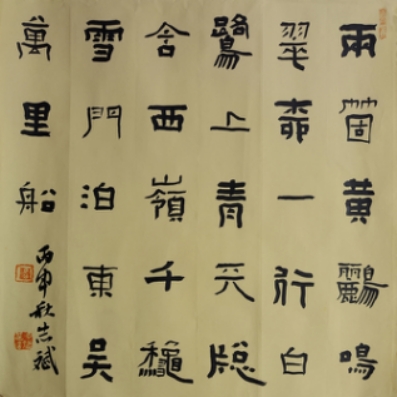 兩箇黃鸝鳴
翠柳一行白
鷺上青天牕
含西嶺千穐
雪門泊東吳
萬里船
丙申秋志斌